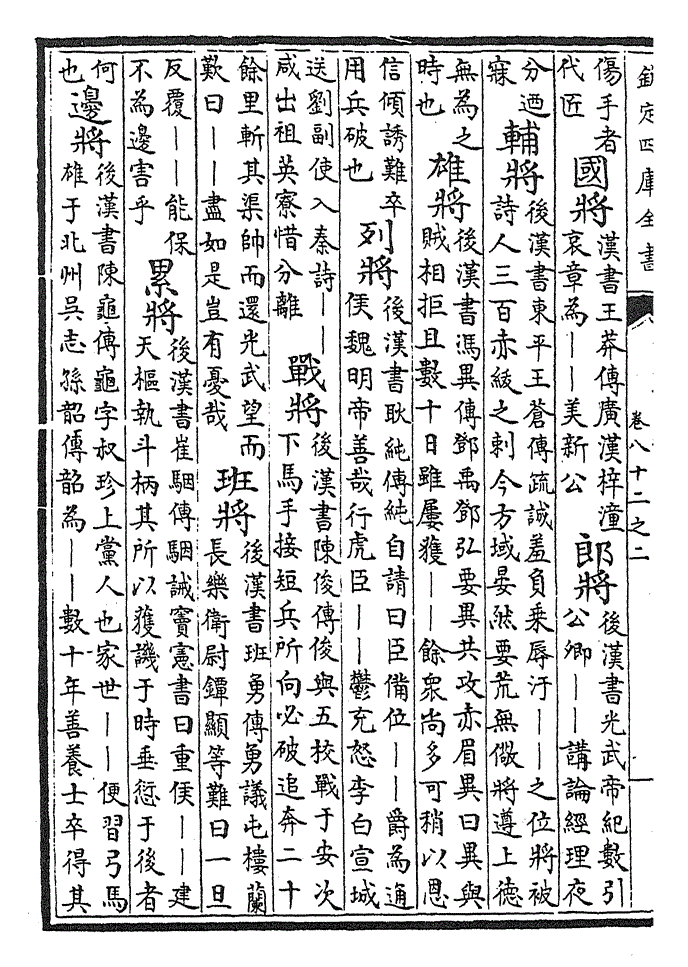 欽定四庫全書 卷八十二之二
傷手者
代匠
國將
漢書王莽傳廣漢梓潼
哀章為——美新公
郎將
後漢書光武帝紀數引
公卿——講論經理夜
分迺
寐
輔將
後漢書東平王蒼傳疏誠羞負乘辱汙——之位將被
詩人三百赤紱之刺今方域晏然要荒無儆將遵上德
無為之
時也
雄將
後漢書馮異傳鄧禹鄧弘要異共攻赤眉異曰異與
賊相拒且數十日雖屢獲——餘衆尚多可稍以恩
信傾誘難卒
用兵破也
列將
後漢書耿純傳純自請曰臣備位——爵為通
侯魏明帝善哉行虎臣——鬱充怒李白宣城
送劉副使入秦詩——
咸出祖英寮惜分離
戰將
後漢書陳俊傳俊與五校戰于安次
下馬手接短兵所向必破追奔二十
餘里斬其渠帥而還光武望而
歎曰——盡如是豈有憂哉
班將
後漢書班勇傳勇議屯樓蘭
長樂衛尉鐔顯等難曰一旦
反覆——能保
不為邊害乎
累將
後漢書崔駰傳駰誡竇憲書曰重侯——建
天樞執斗柄其所以獲譏于時垂愆于後者
何
也
邊將
後漢書陳龜傳龜字叔珍上黨人也家世——便習弓馬
雄于北州吳志孫韶傳韶為——數十年善養士卒得其